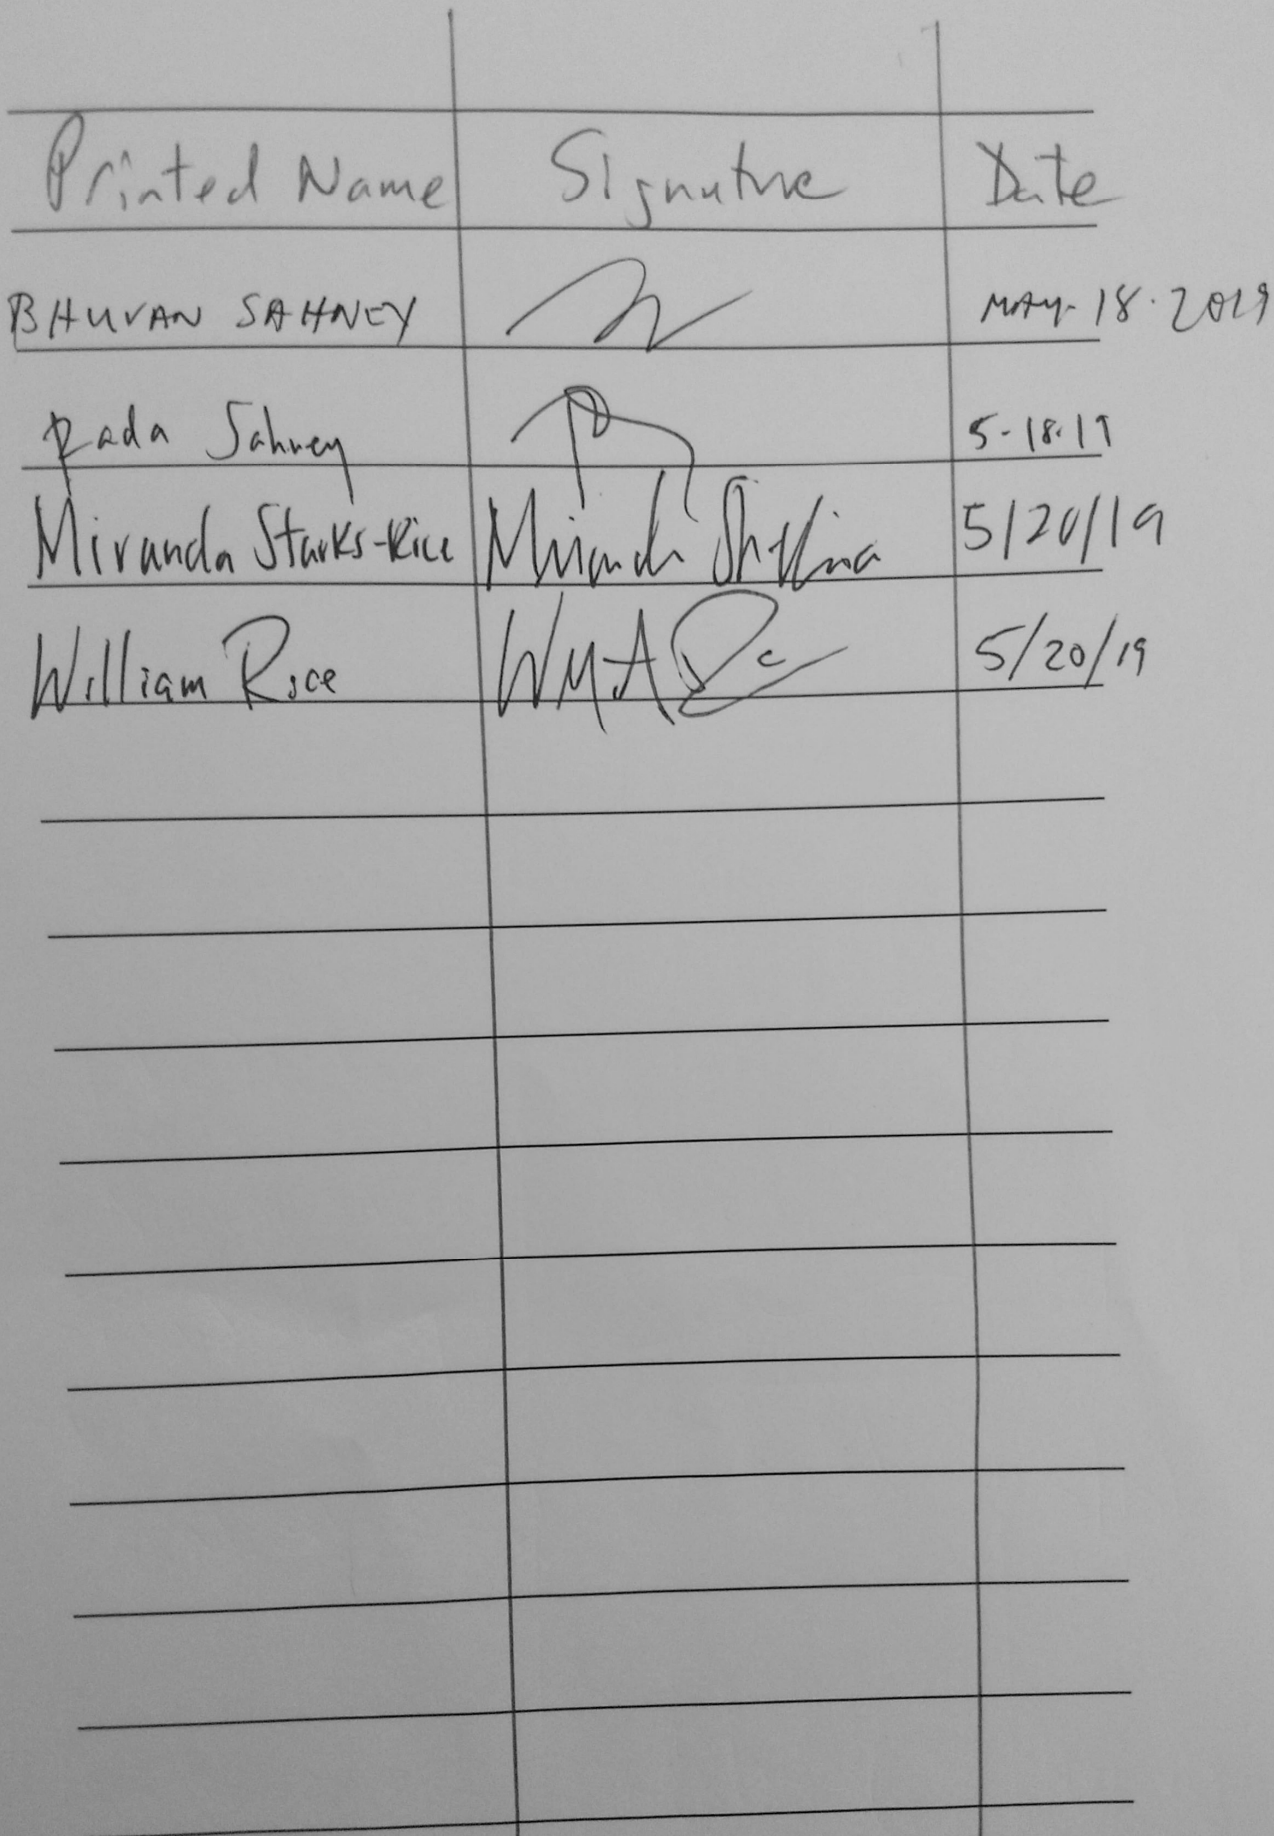 Printed Name Signature Date
BHUVAN SAHNEY MAY-18-2019
Rada Sahney 5-18-19
Miranda Starks-Rice 5/20/19
William Rice 5/20/19